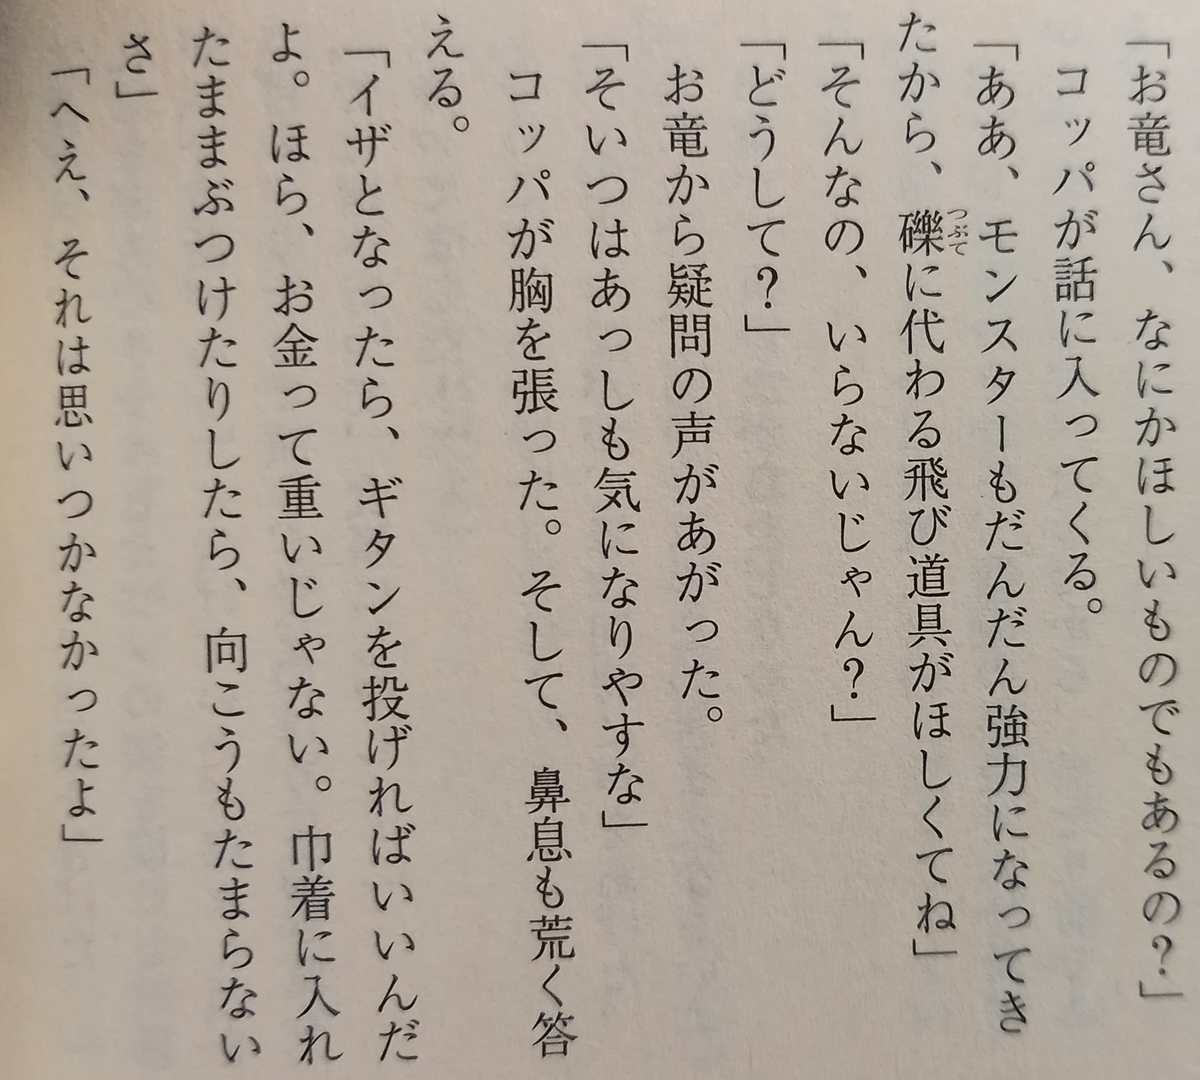 「お竜さん、なにかほしいものでもあるの？」
コッパが話に入ってくる。
「ああ、モンスターもだんだん強力になってき
たから、礫つぶてに代わる飛び道具がほしくてね」
「そんなの、いらないじゃん？」
「どうして？」
お竜から疑問の声があがった。
「そいつはあっしも気になりやすな」
コッパが胸を張った。そして、鼻息も荒く答
える。
「イザとなったら、ギタンを投げればいいんだ
よ。ほら、お金って重いじゃない。巾着に入れ
たままぶつけたりしたら、向こうもたまらない
さ」
「へえ、それは思いつかなかったよ」